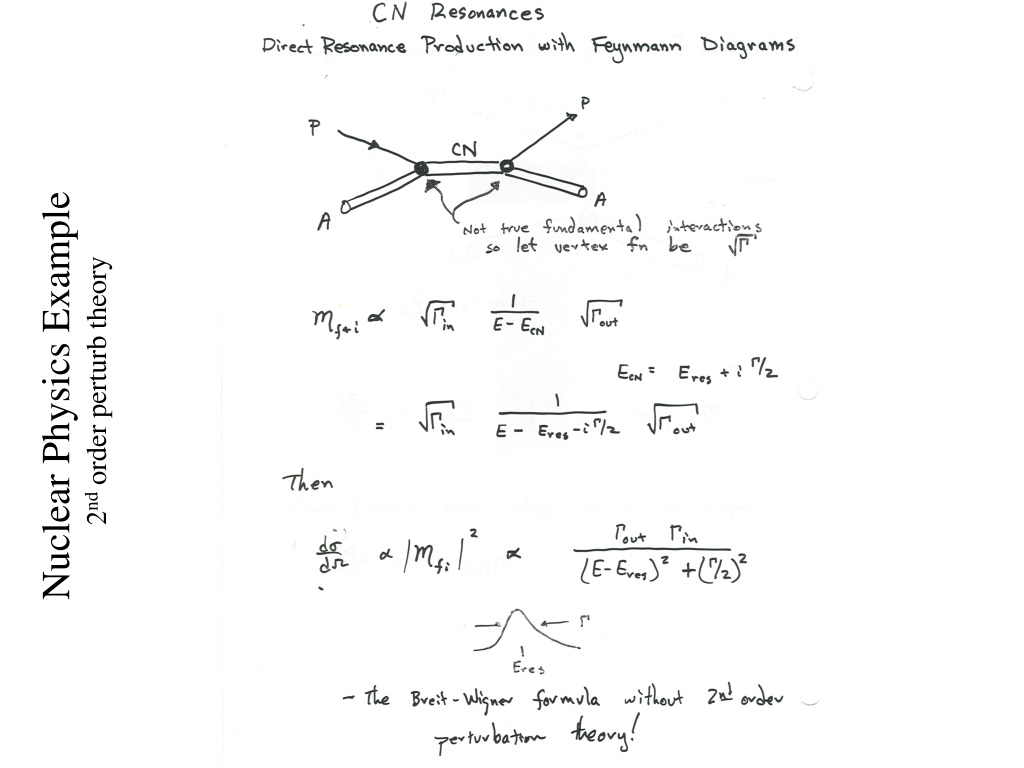 Nuclear Physics Example
2nd order perturb theory
CN Resonances
Direct Resonance Production with Feynmann Diagrams
P
P
CN
A
A
Not true fundamental interactions
so let vertex fn be √Γ
m_{f←i} ∝ √Γ_in 1/(E - E_CN) √Γ_out
E_CN = E_res + i Γ/2
= √Γ_in 1/(E - E_res - i Γ/2) √Γ_out
Then
dσ/dΩ ∝ |m_fi|² ∝ Γ_out Γ_in / ((E - E_res)² + (Γ/2)²)
Γ
E_res
- The Breit-Wigner formula without 2nd order
perturbation theory!